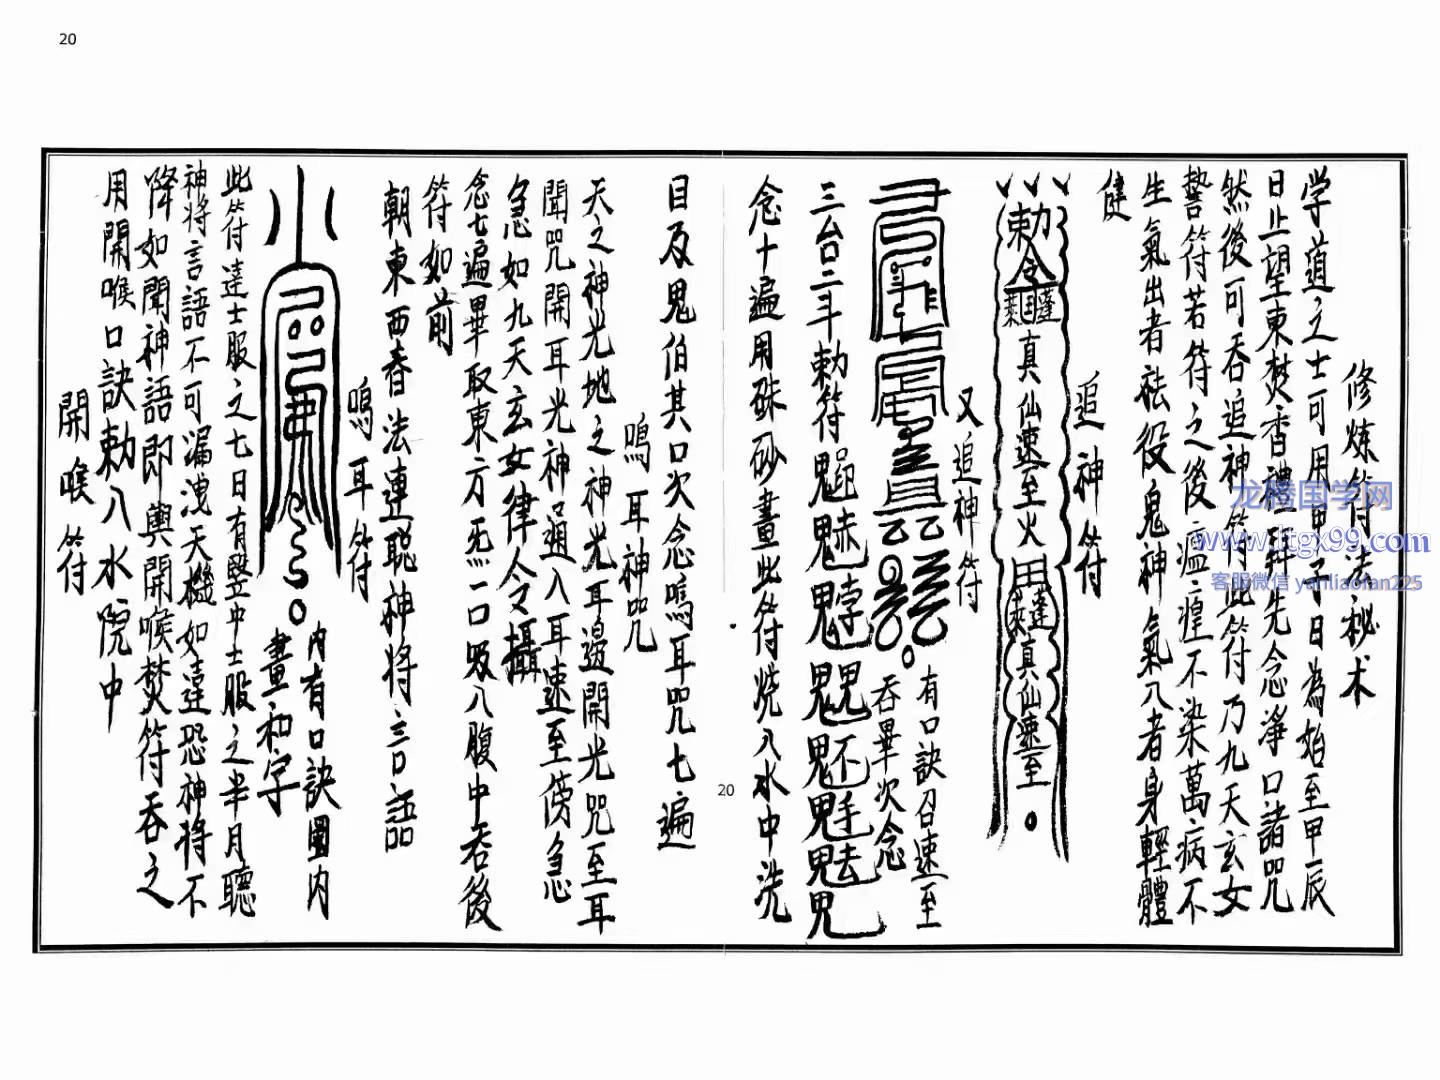 20
修炼符法秘术
学道之士可用甲子日為始至甲辰
日止望東焚香禮拜先念淨口諸咒
然後可吞追神符此符乃九天玄女
誓符若符之後瘟瘴不染萬病不
生氣出者祛役鬼神氣入者身輕體
健
追神符
勅令
蓬萊
真仙速至火
蓬萊真仙速至
又追神符
有口訣召速至
吞畢次念
三台二斗勅符
念十遍用硃砂畫此符烧入水中洗
目及鬼伯其口次念鳴耳咒七遍
鳴耳神咒
天之神光地之神光耳邊開光咒至耳
聞咒開耳光神口通入耳速至傍急
急如九天玄女律令攝
念七遍畢取東方炁一口吸入腹中吞後
符如前
朝東西春法連聪神将言語
鳴耳符
内有口訣圈内
畫和字
此符逹士服之七日有竪中士服之半月聽
神將言語不可漏洩天機如違恐神將不
降如聞神語即與開喉焚符吞之
用開喉口訣勅入水院中
開喉符
20
龙腾国学网
www.ltgx99.com
客服微信 yanliaofan225